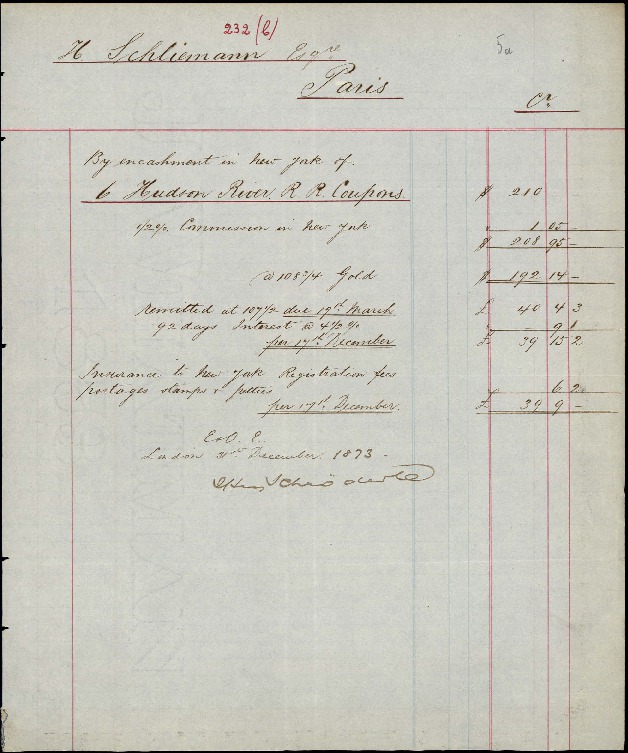 232 (b)
5a
H. Schliemann Esqre
Paris
Cr
By encashment in New York of
6 Hudson River R. R. Coupons $ 210
1/2 % Commission in New York 1 05 –
$ 208 95 –
@ 108 3/4 Gold $ 192 14 –
Remitted at 107 1/2 due 19th March £ 40 4 3
92 days Interest @ 4 1/2 % – 9 1
per 17th December £ 39 15 2
Insurance to New York Registration fees
postages stamps & petties 6 2
per 17th December £ 39 9 –
E. & O. E.
London 31st December 1873 –